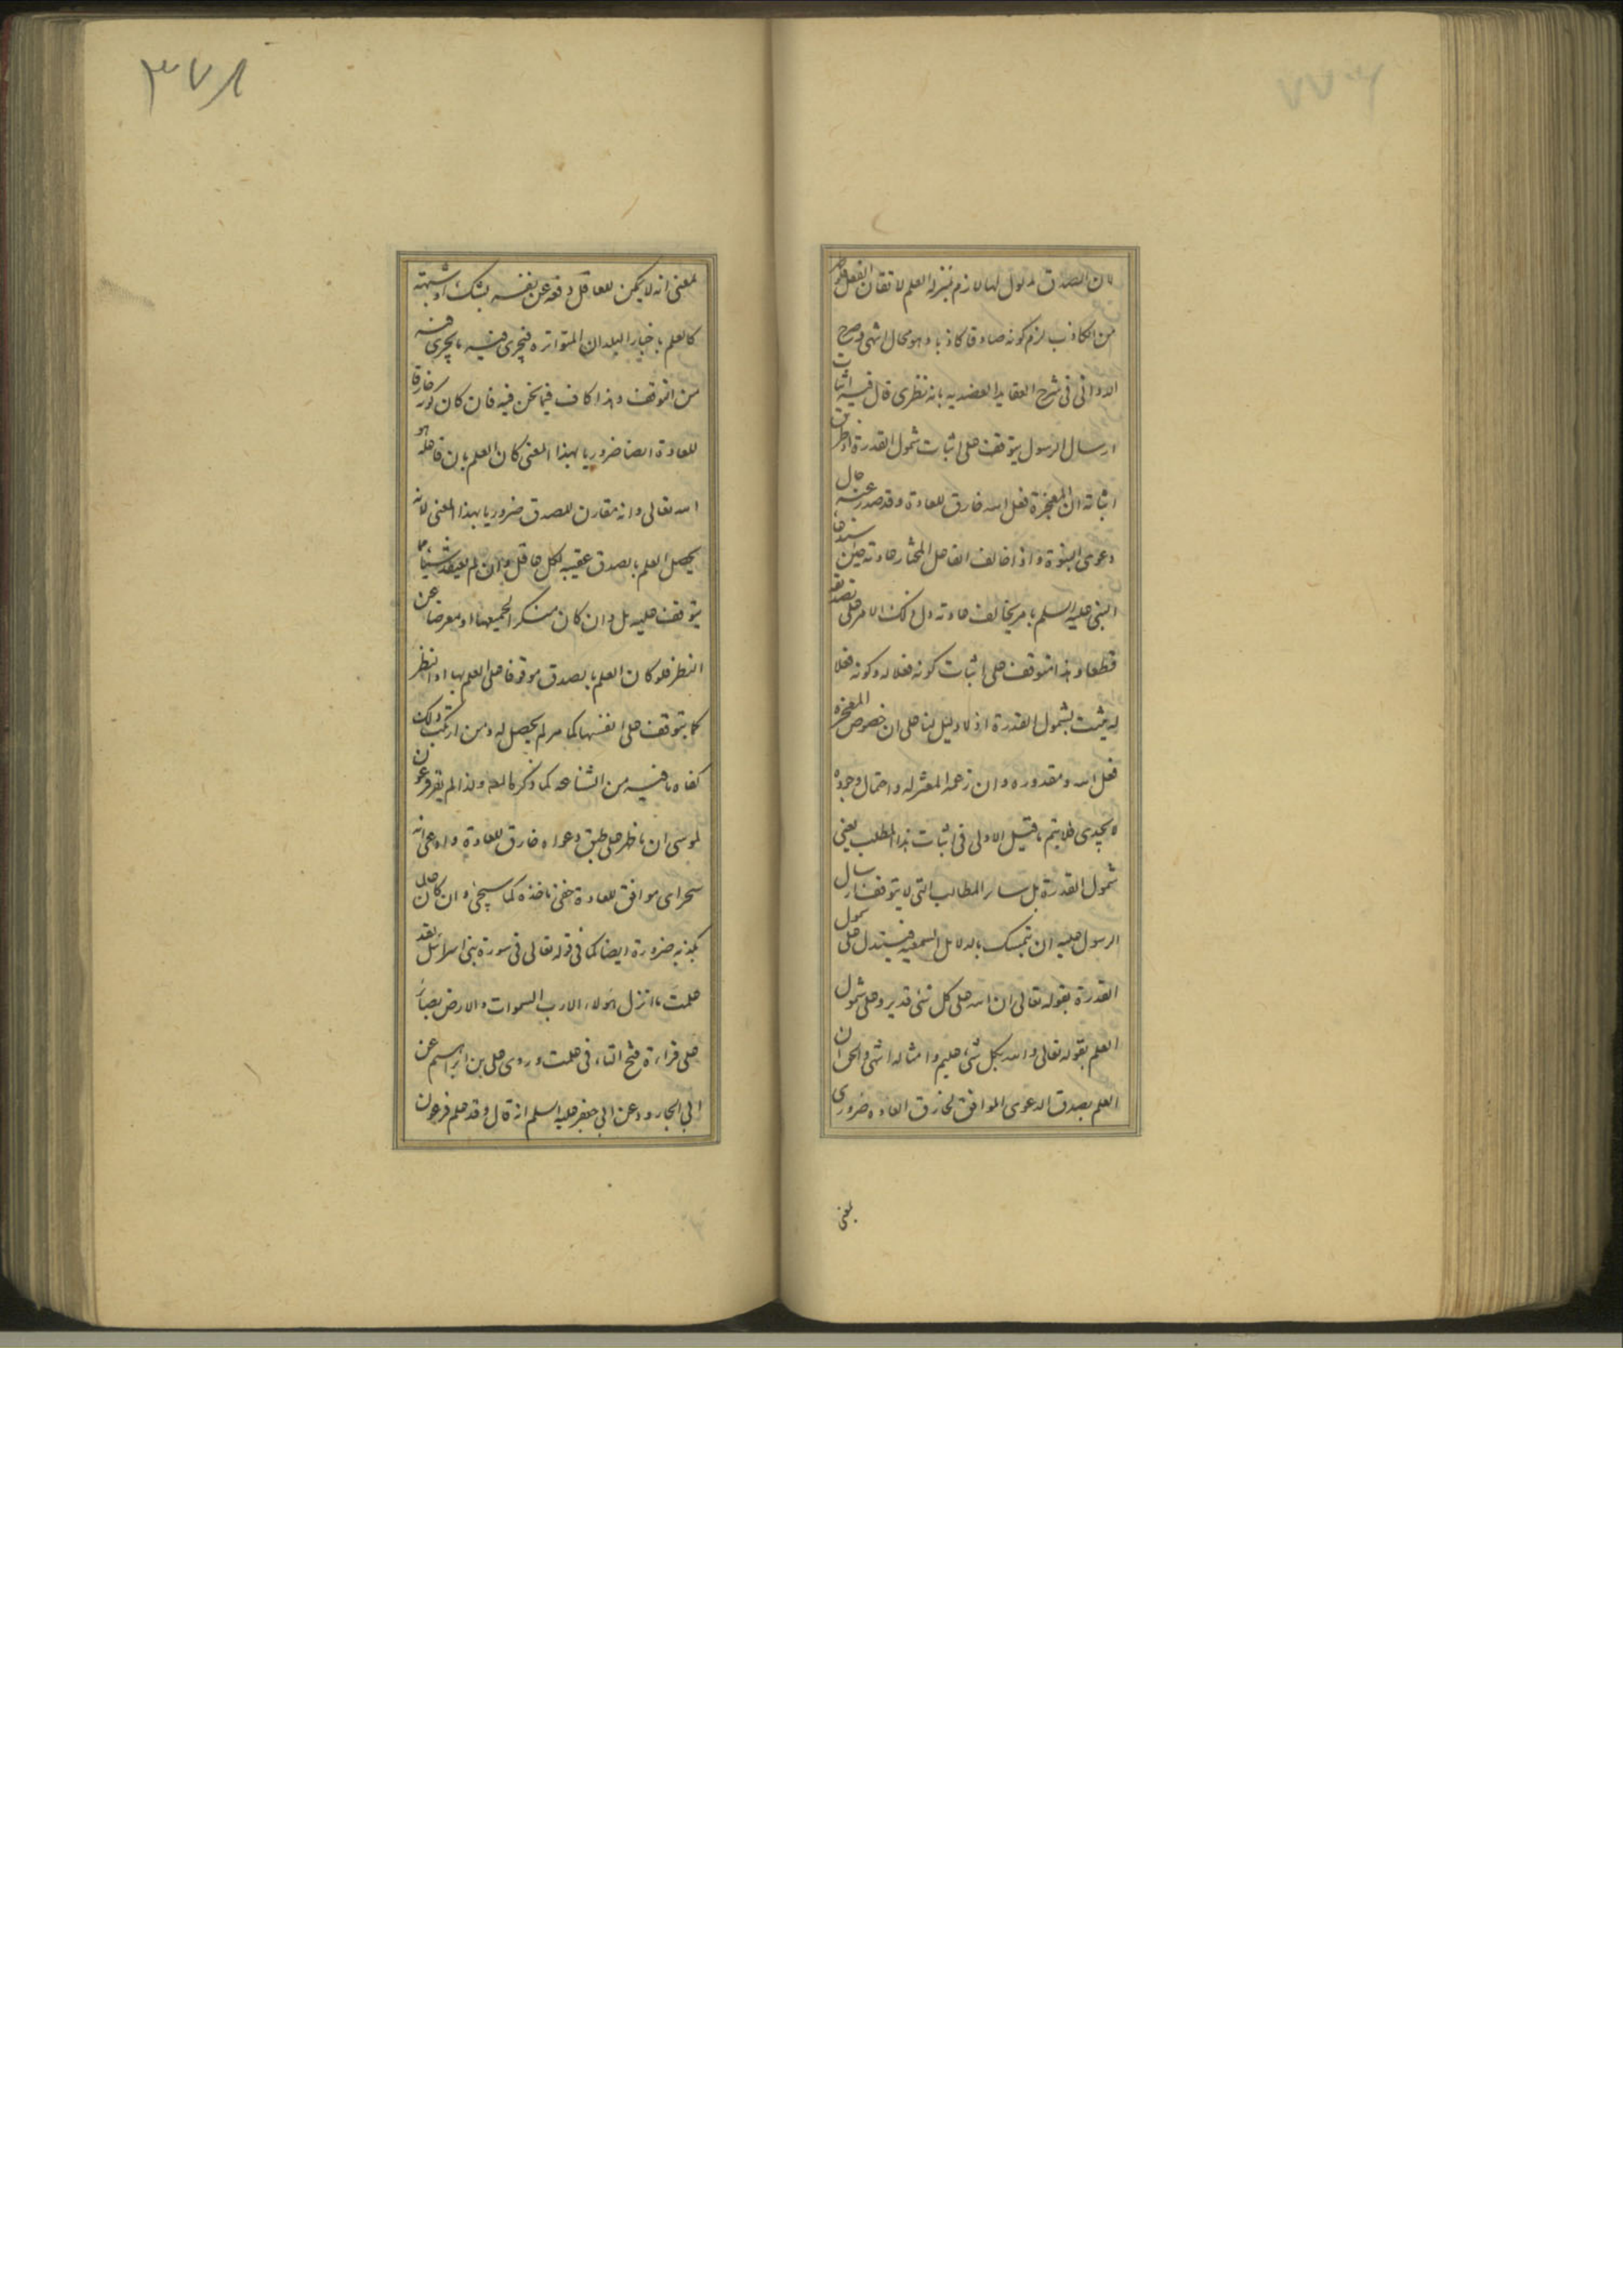 ٣٧٨
لان الصدق مدلول لها لازم بمنزلة العلم لاتقان الفعل فلو
من الكاذب لزم كونه صادقا كاذبا وهو محال انتهى وصرح
الدواني في شرح العقايد العضدية بانه نظري قال فيه اثبات
ارسال الرسول يتوقف على اثبات شمول القدرة اذ طريق
اثباته ان المعجزة فعل الله خارق للعادة وقد صدر عنه حال
دعوى النبوة واذا خالف الفاعل المختار عادته حين
النبي عليه السلم بامر يخالف عادته دل ذلك الامر على تصديقه
قطعا وهذا يتوقف على اثبات كونه فعلا له وكونه فعلا
له يثبت بشمول القدرة اذ لا دليل لنا على ان خصوص المعجزة
فعل الله ومقدوره وان زعمه المعتزلة واحتمال وجوده
لا يجدي فلا يتم ما قيل الاولى في اثبات هذا المطلب يعني
شمول القدرة بل ساير المطالب التي لا يتوقف ارسال
الرسول عليه ان يتمسك بالدلايل السمعية فيستدل على شمول
القدرة بقوله تعالى ان الله على كل شئ قدير وعلى شمول
العلم بقوله تعالى والله بكل شئ عليم وامثاله انتهى والحق ان
العلم بصدق الدعوى الموافق لخارق العادة ضروري
بمعنى
بمعنى انه لا يمكن للعاقل دفعه عن نفسه بشك او شبهة
كالعلم باخبار البلدان المتواترة فيجري فيه ما يجري فيه
من التوقف وهذا كاف فيما نحن فيه فان كان كون خارقا
للعادة ايضا ضروريا بهذا المعنى كان العلم بان فاعله هو
الله تعالى وانه مقارن للصدق ضروريا بهذا المعنى لانه
يحصل العلم بالصدق عقيبه لكل عاقل وان لم يعتقد شيئا مما
يتوقف عليه بل وان كان منكرا لجميعها او معرضا عن
النظر فلو كان العلم بالصدق موقوفا على العلم بها او النظر
كما يتوقف على انفسها كما مر لم يحصل له ومن ارتكب ذلك
كفاه ما فيه من الشناعة كما ذكرنا لهم ولذا لم يقر فرعون
لموسى ان ما ظهر على طبق دعواه خارق للعادة وادعى انه
سحر اي موافق للعادة خفي ماخذه كما سيجئ وان كان على
تكذيبه ضرورة ايضا كما في قوله تعالى في سورة بني اسرائيل لقد
علمت ما انزل هؤلاء الا رب السموات والارض بصائر
على قراءة فتح التاء في علمت وروى علي بن ابراهيم عن
ابي الجارود عن ابي جعفر عليه السلم انه قال وقد علم فرعون